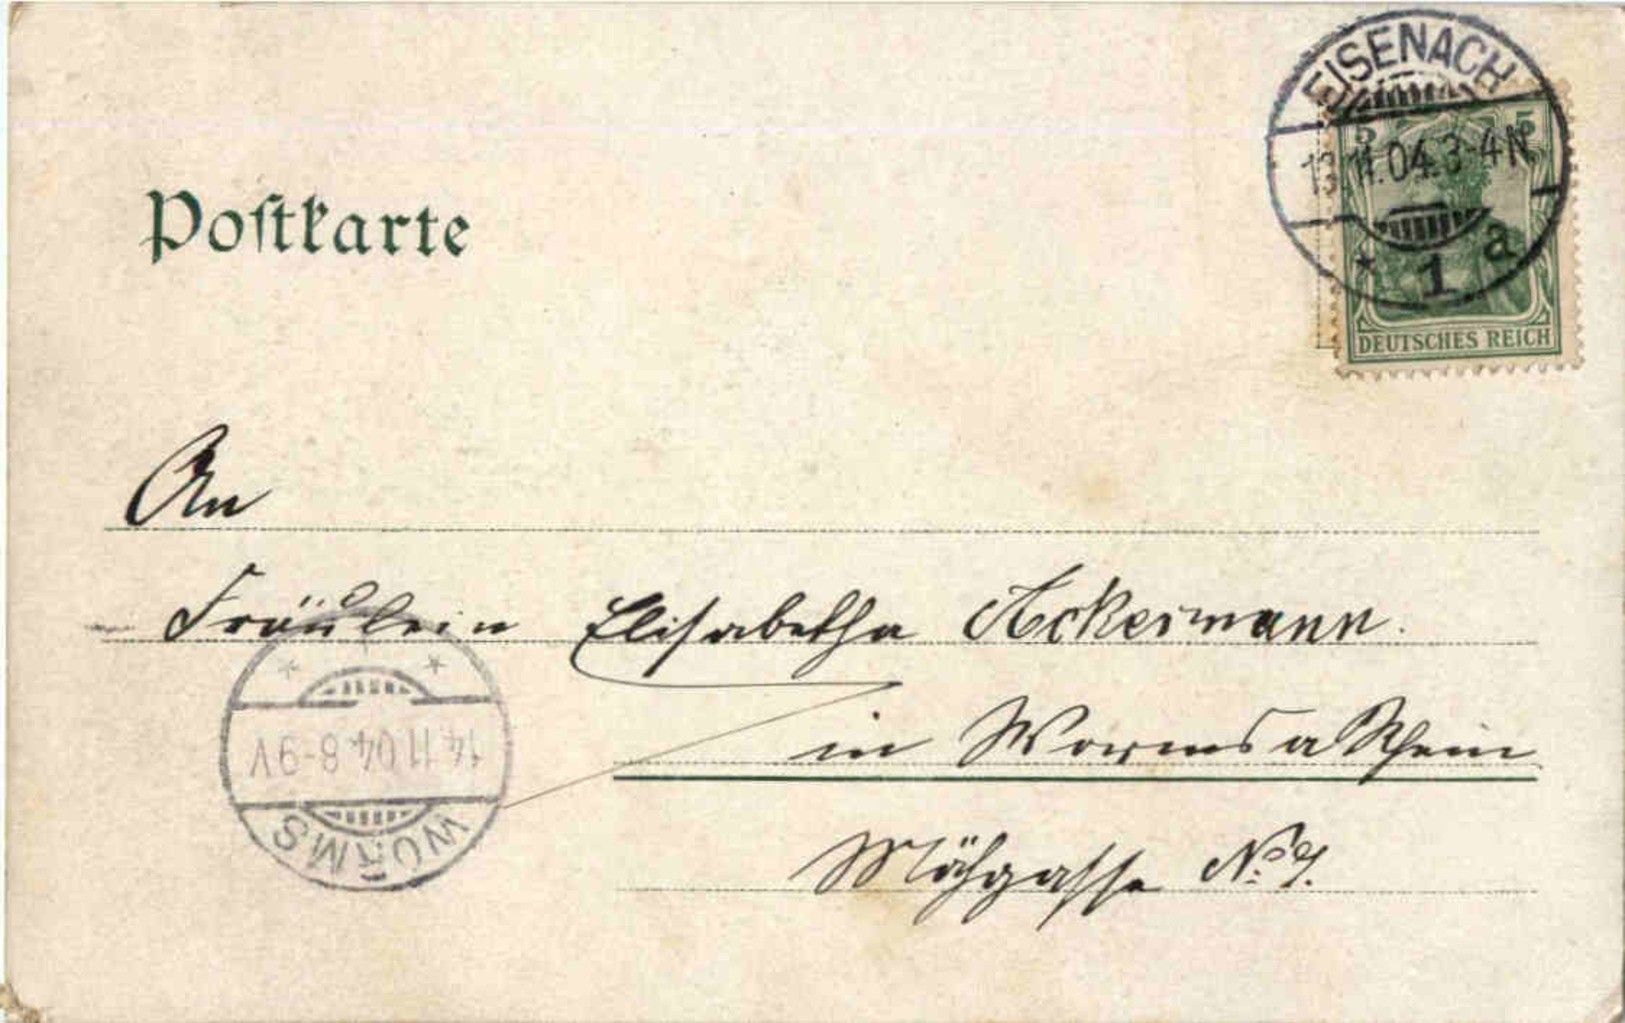 EISENACH
5 5
13.11.04.3-4N
* 1 a
DEUTSCHES REICH
Postkarte
An
Fräulein Elisabetha Ackermann.
in Worms a Rhein
14.11.04.8-9V
WORMS